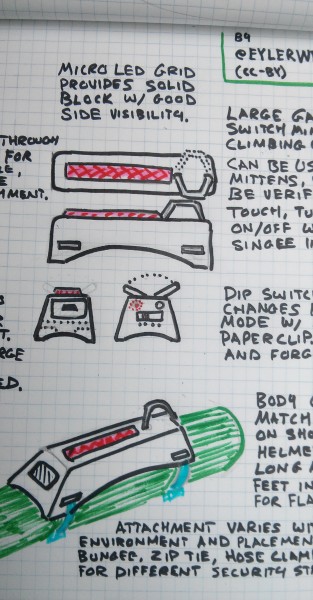 BY
@EYLERW
(CC-BY)
MICRO LED GRID
PROVIDES SOLID
BLOCK W/ GOOD
SIDE VISIBILITY.
LARGE GA
SWITCH MI
CLIMBING
CAN BE US
MITTENS,
BE VERIF
TOUCH, TU
ON/OFF W
SINGLE I
THROUGH
FOR
MENT.
DIP SWITC
CHANGES
MODE W/
PAPERCLIP.
AND FORG
T.
RGE
ED.
BODY
MATCH
ON SHO
HELME
LONG
FEET IN
FOR FLA
ATTACHMENT VARIES WI
ENVIRONMENT AND PLACEMEN
BUNGEE, ZIP TIE, HOSE CLAM
FOR DIFFERENT SECURITY ST